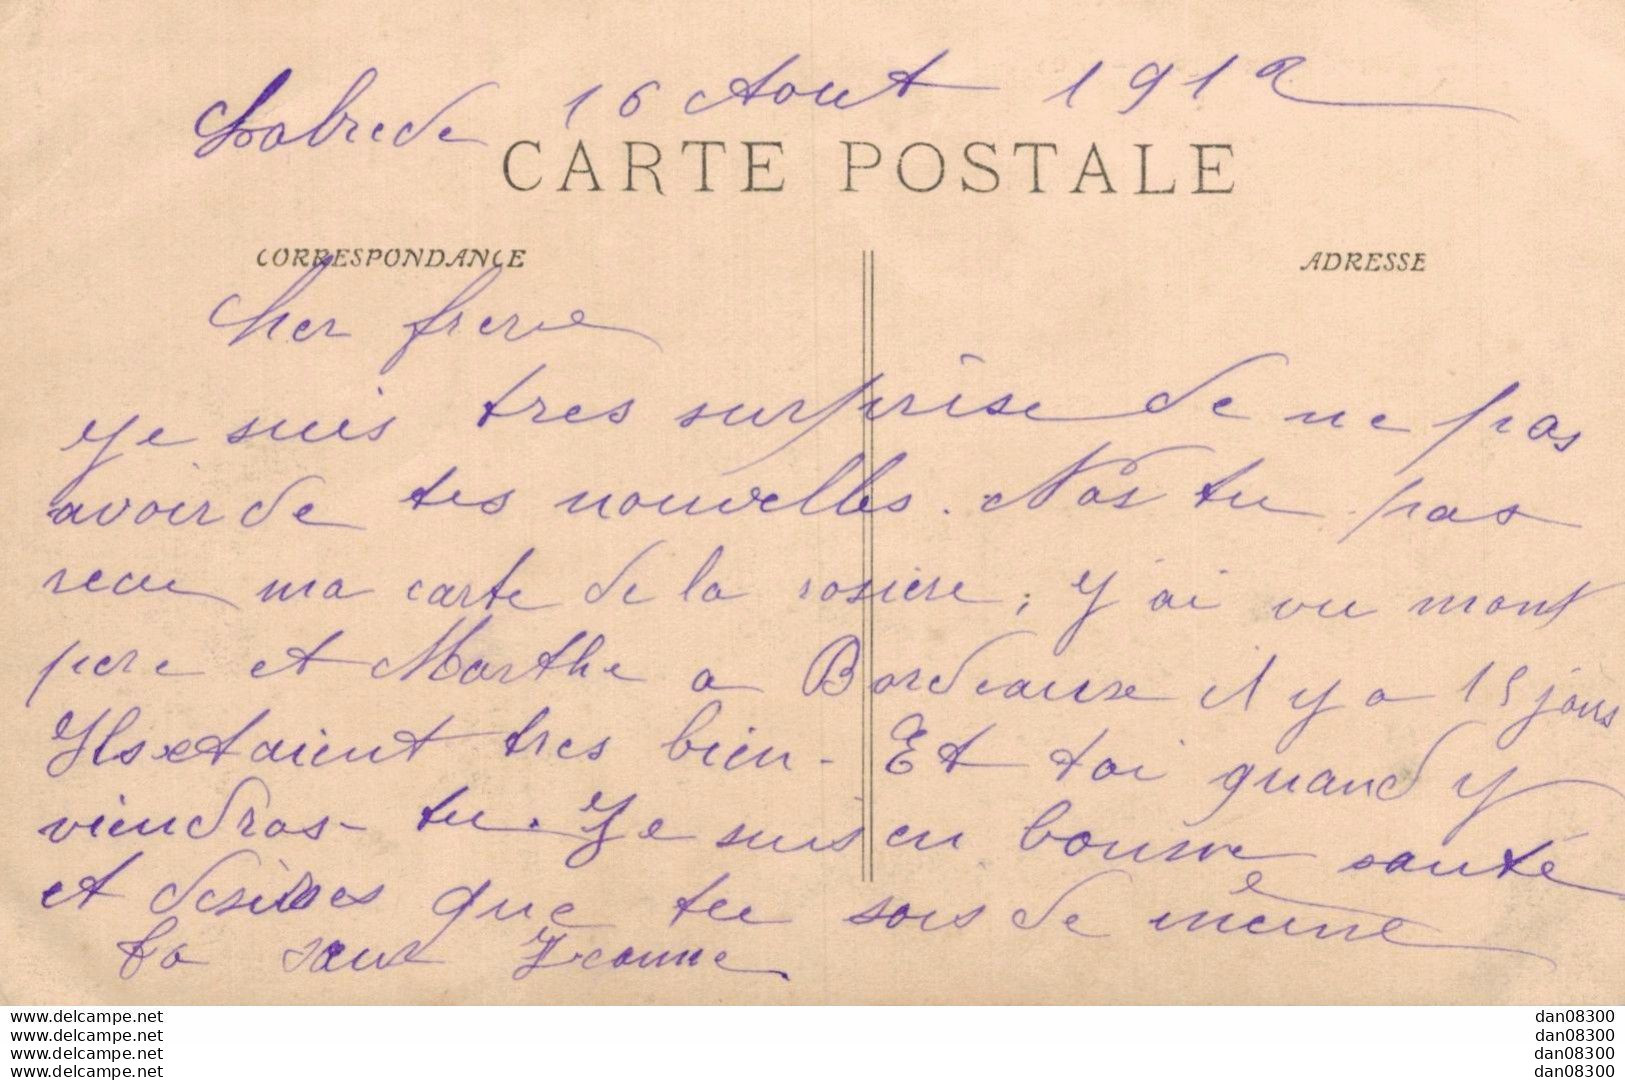 Labrede 16 Aout 1912
CARTE POSTALE
CORRESPONDANCE
ADRESSE
Cher frere
Je suis tres surprise de ne pas
avoir de tes nouvelles. Nas tu pas
recue ma carte de la rosiere, J'ai vu mont
pere et Marthe a Bordeause il y a 15 jours
Ils etaient tres bien - Et toi quand y
viendras-tu. Je suis en bonne santé
et desires que tu sois de même
ta sœur Jeanne
www.delcampe.net
www.delcampe.net
www.delcampe.net
www.delcampe.net
dan08300
dan08300
dan08300
dan08300